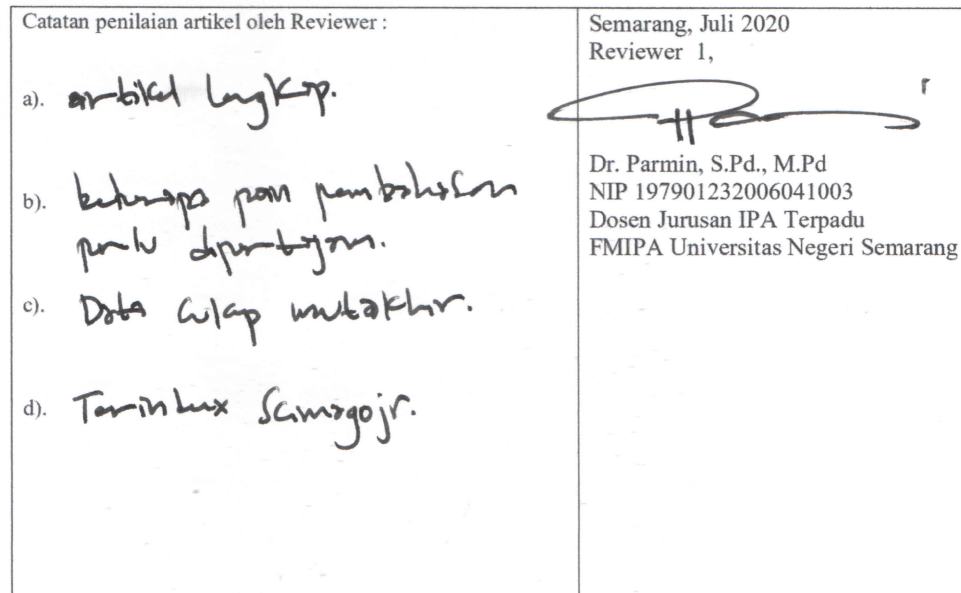 Catatan penilaian artikel oleh Reviewer :
a). artikel lengkap.
b). beberapa poin pembahasan
perlu dipertajam.
c). Data cukup mutakhir.
d). Terindex Scimagojr.
Semarang, Juli 2020
Reviewer 1,
Dr. Parmin, S.Pd., M.Pd
NIP 197901232006041003
Dosen Jurusan IPA Terpadu
FMIPA Universitas Negeri Semarang